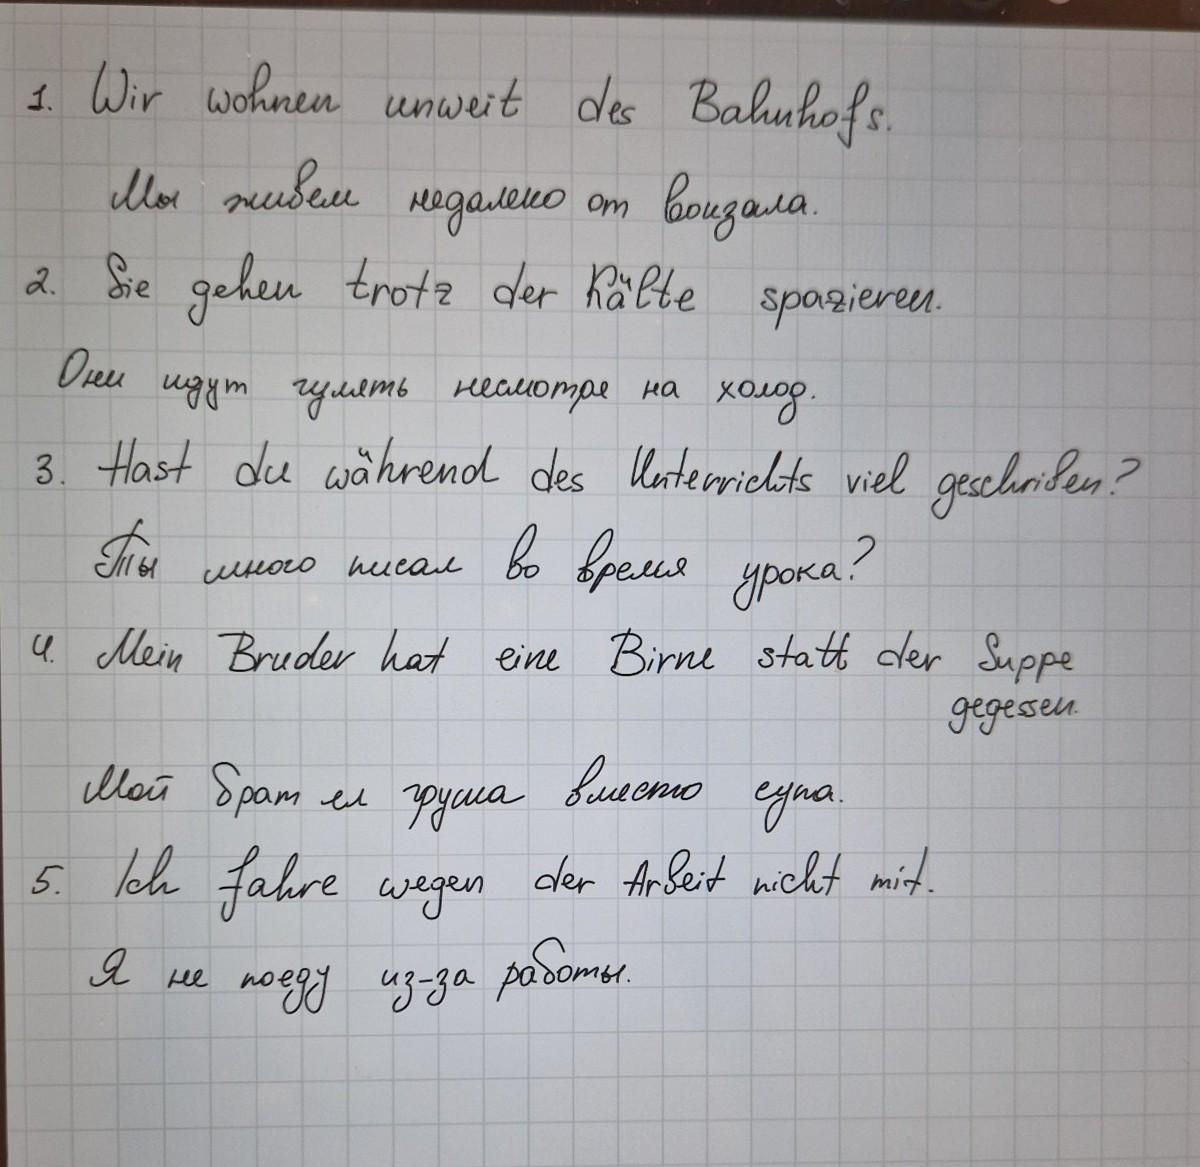 1. Wir wohnen unweit des Bahnhofs.
Мы живем недалеко от вокзала.
2. Sie gehen trotz der Kälte spazieren.
Они идут гулять несмотря на холод.
3. Hast du während des Unterrichts viel geschriben?
Ты много писал во время урока?
4. Mein Bruder hat eine Birne statt der Suppe
gegessen.
Мой брат ел груша вместо супа.
5. Ich fahre wegen der Arbeit nicht mit.
Я не поеду из-за работы.